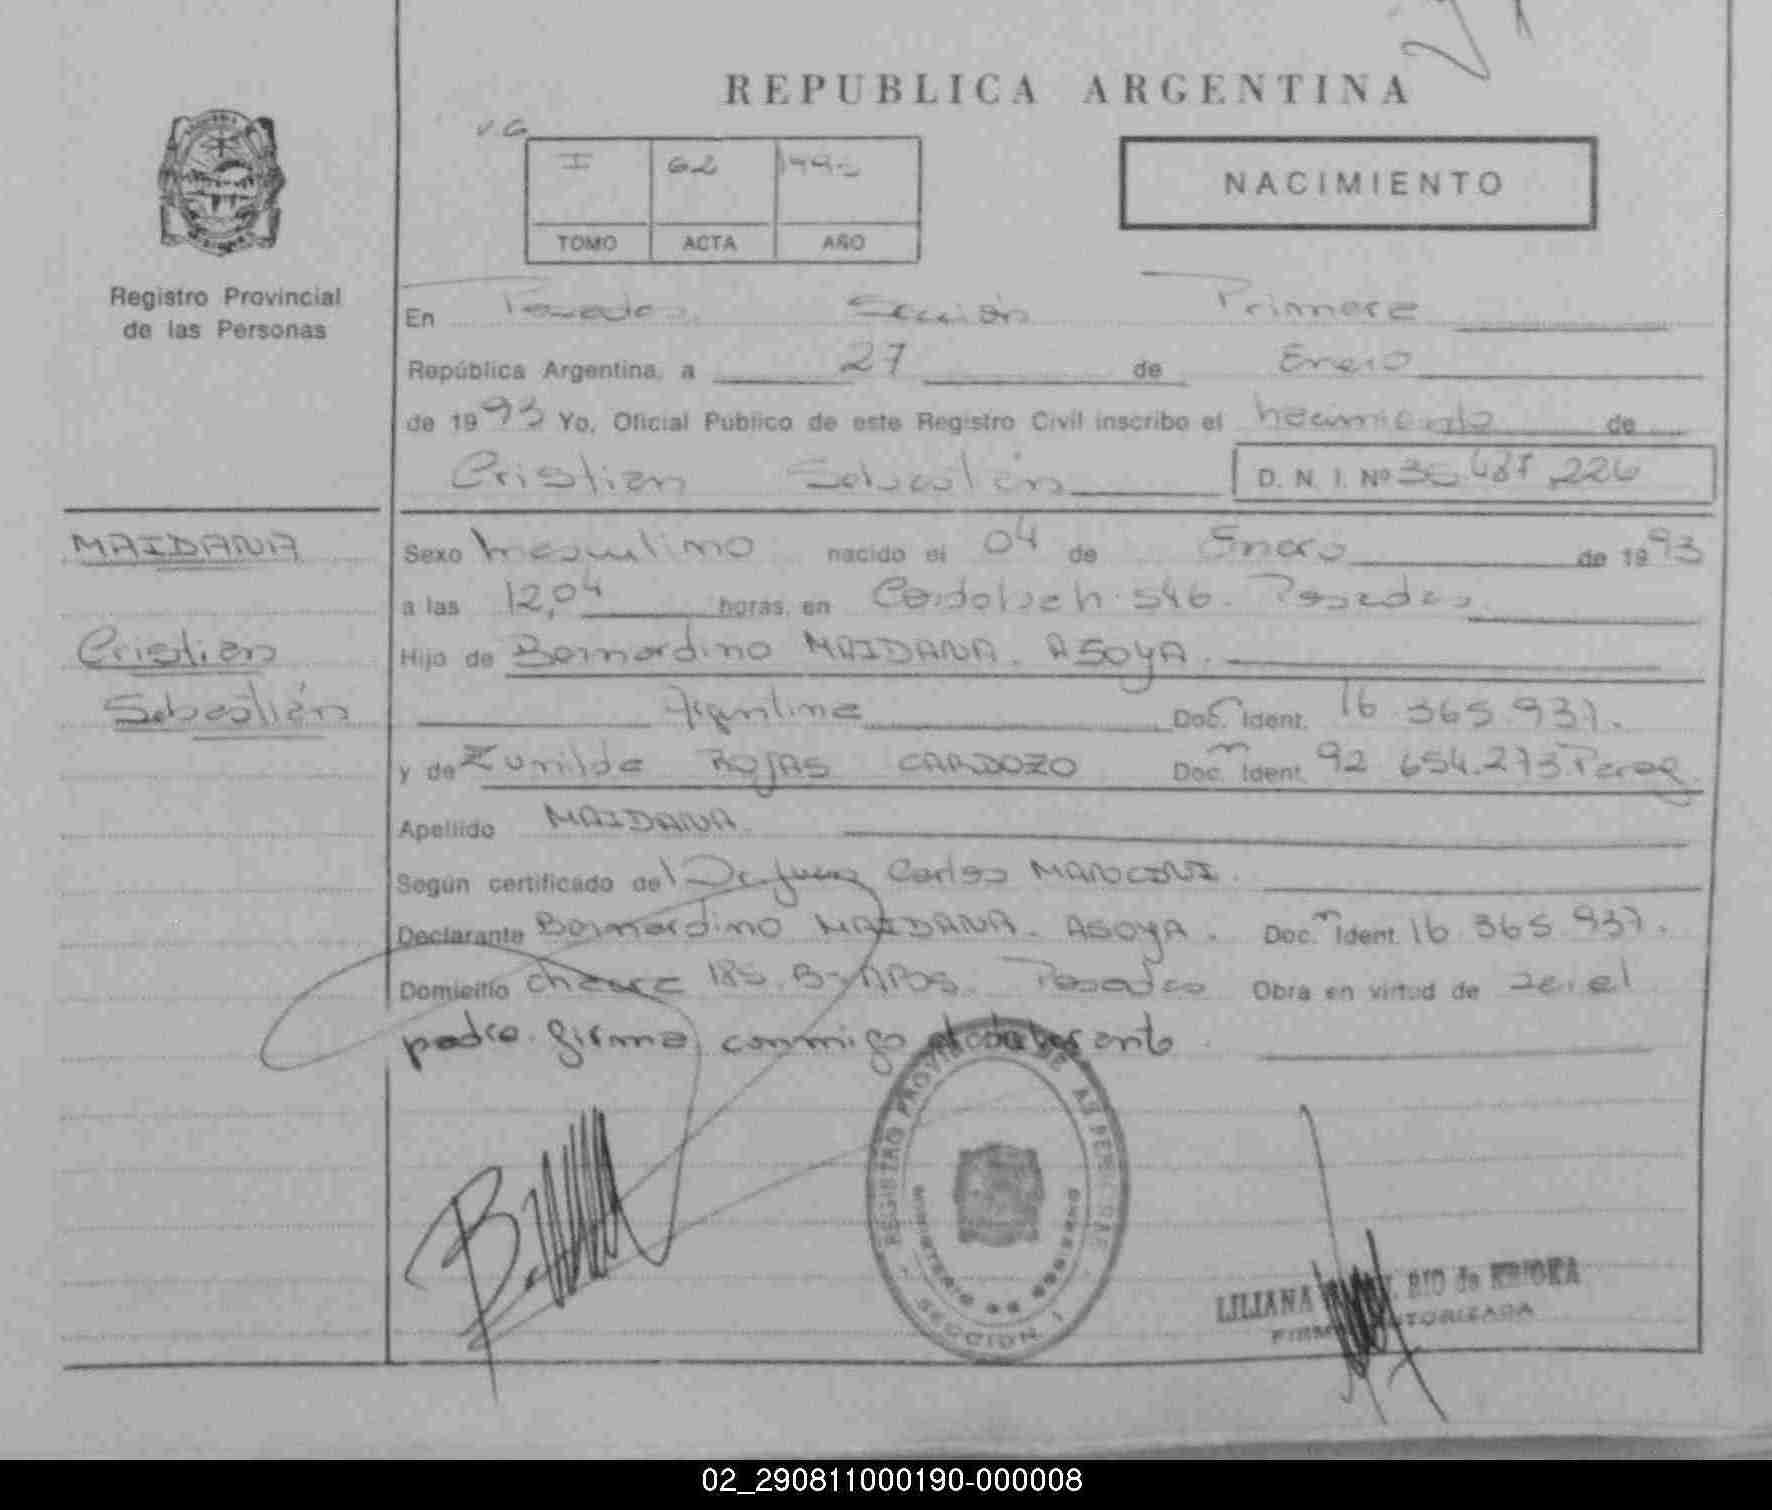 REPUBLICA ARGENTINA
V.G.
I 62 1993
TOMO ACTA AÑO
NACIMIENTO
Registro Provincial
de las Personas
En Posadas Sección Primera
República Argentina, a 27 de Enero
de 1993 Yo, Oficial Público de este Registro Civil inscribo el nacimiento de
Cristian Sebastián D. N. I. Nº
MAIDANA
Cristian
Sebastián
Sexo masculino nacido el 04 de Enero de 1993
a las 12,04 horas, en 546. Posadas
Hijo de Bernardino MAIDANA. ASOYA.
Argentina Doc. Ident. 16.365.937.
y de Zunilda ROJAS CARDOZO Doc. Ident. 92.654.273. Parag.
Apellido MAIDANA
Según certificado del Dr Juan Carlos
Declarante Bernardino MAIDANA. ASOYA. Doc. Ident. 16.365.937.
Domicilio chacra 185. Posadas Obra en virtud de ser el
padre. firma conmigo el declarante.
REGISTRO PROVINCIAL DE LAS PERSONAS
MINISTERIO DE GOBIERNO
SECCION 1
LILIANA RIO de
FIRMA AUTORIZADA
02_290811000190-000008